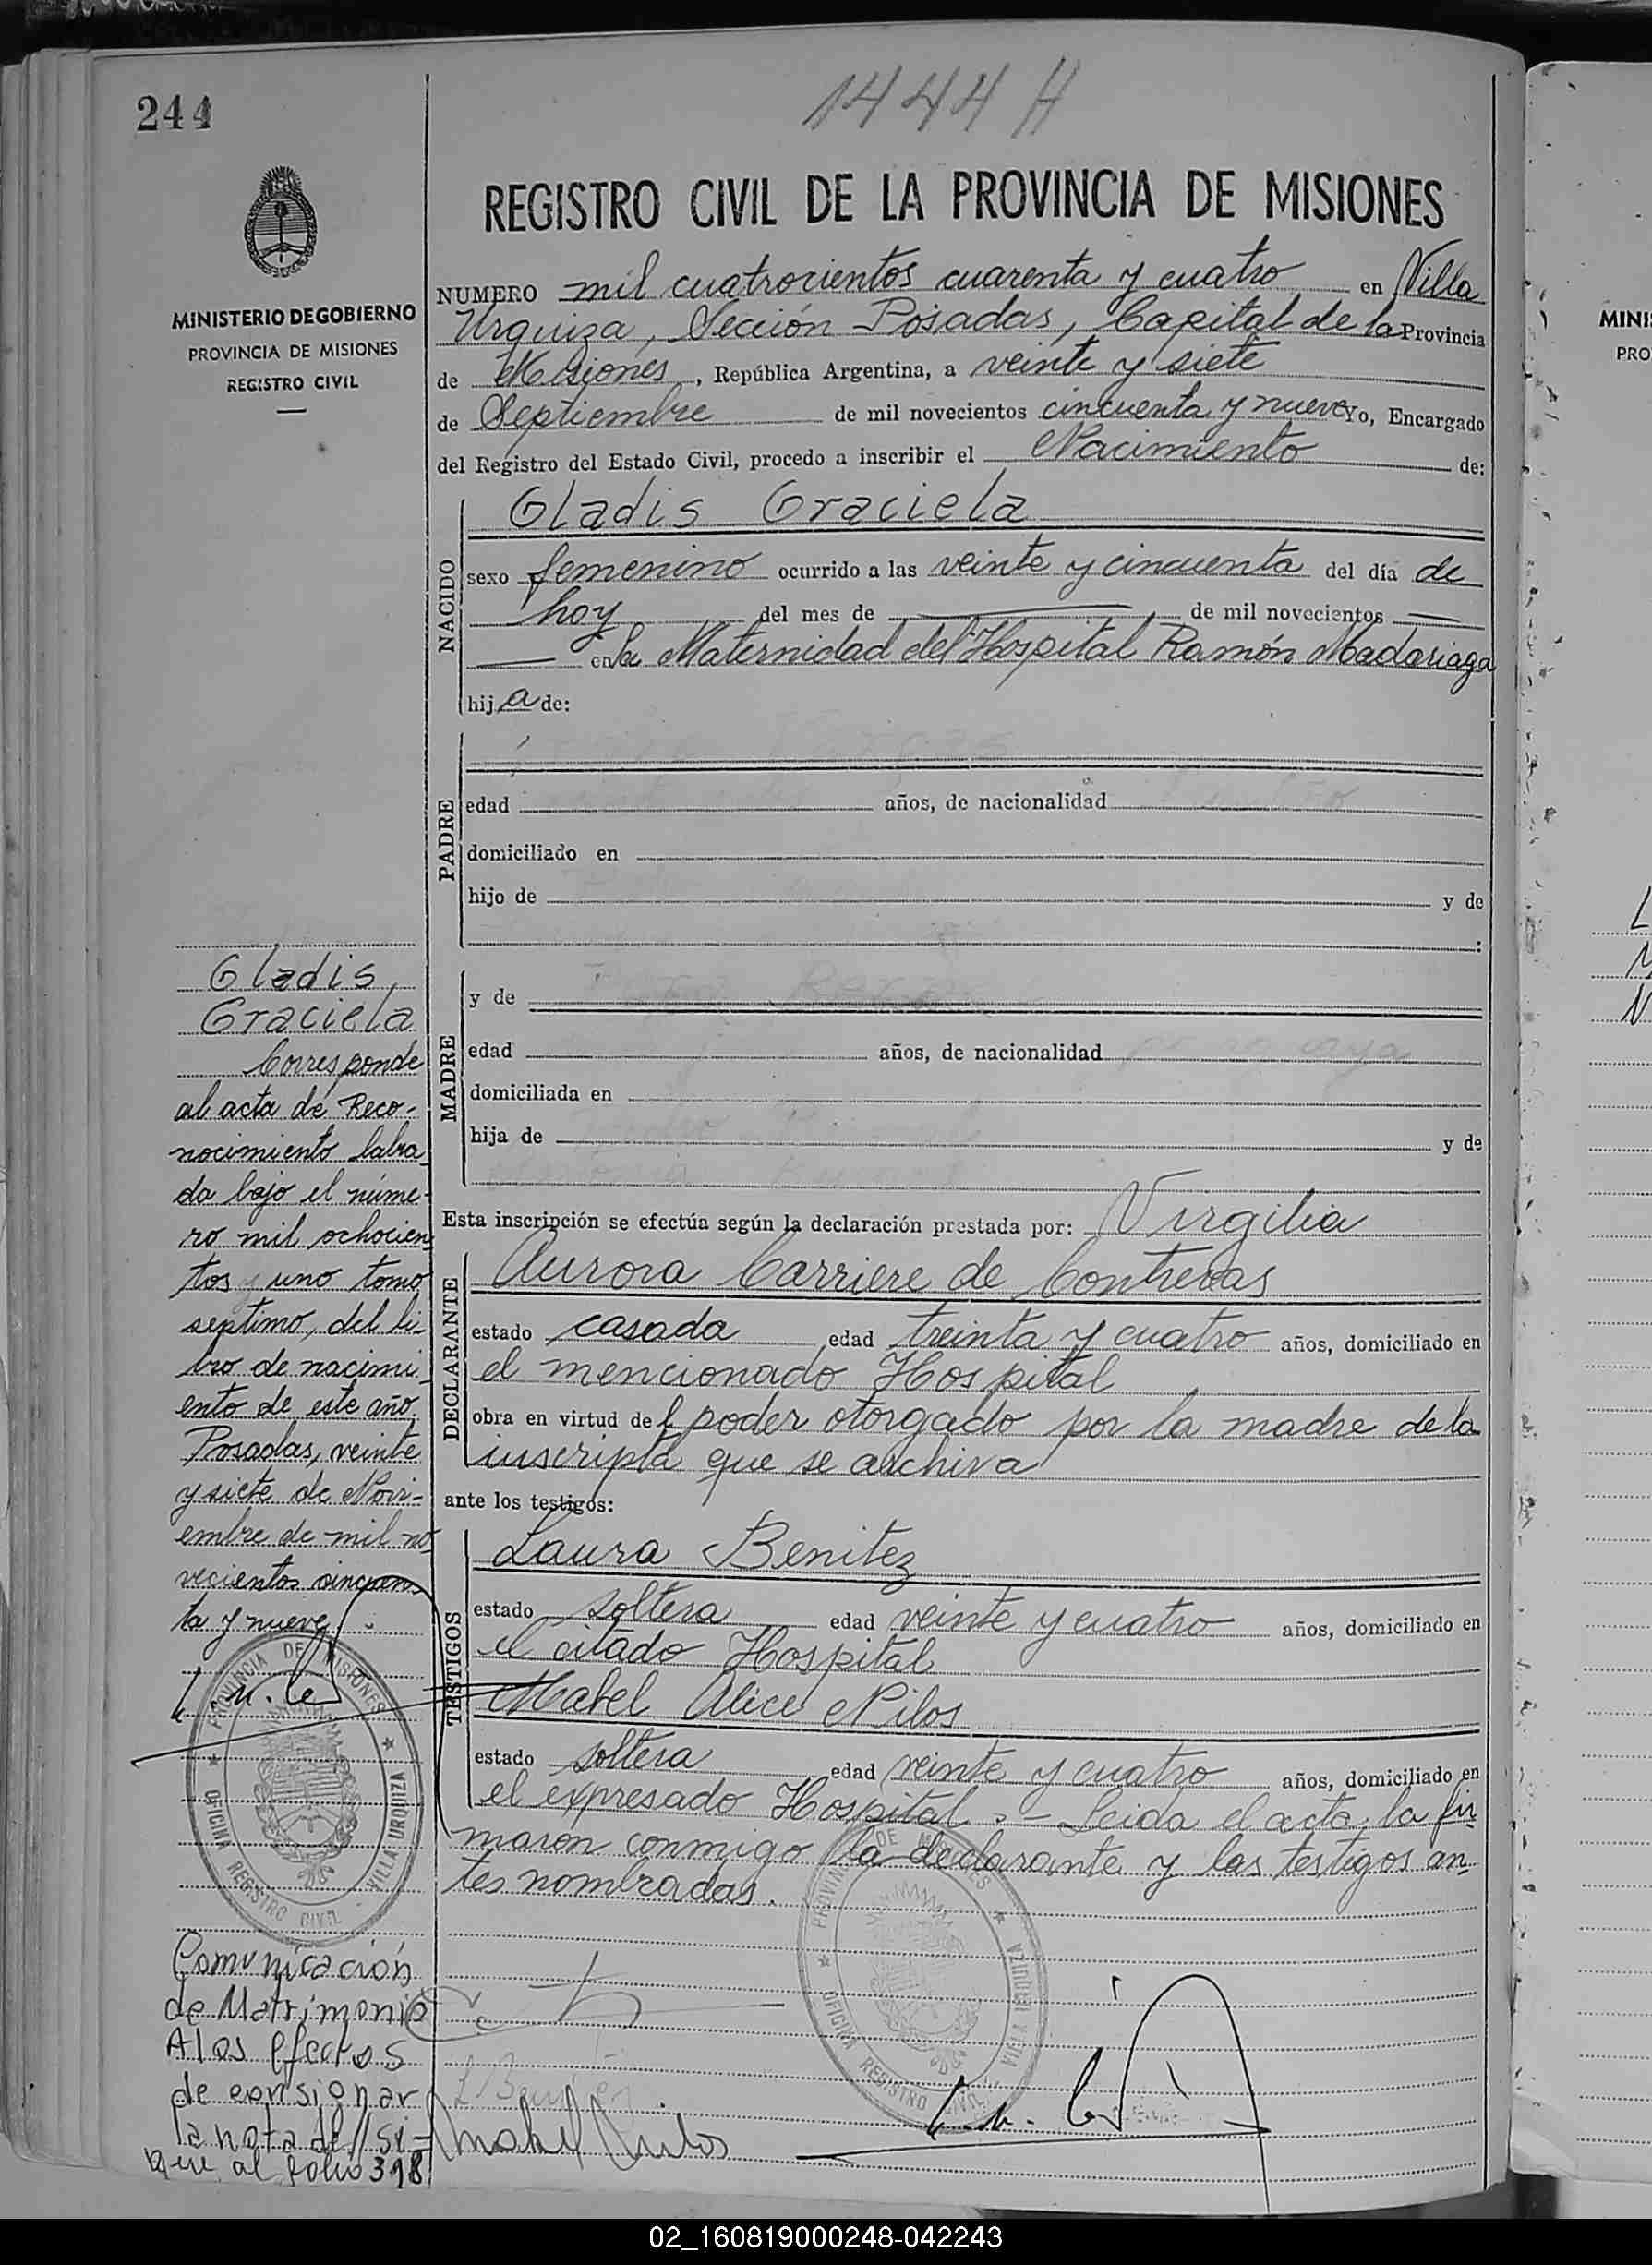 244
1444 H
MINISTERIO DE GOBIERNO
PROVINCIA DE MISIONES
REGISTRO CIVIL
REGISTRO CIVIL DE LA PROVINCIA DE MISIONES
NUMERO mil cuatrocientos cuarenta y cuatro en Villa
Urquiza, Sección Posadas, Capital de la Provincia
de Misiones, República Argentina, a veinte y siete
de Septiembre de mil novecientos cincuenta y nueve Yo, Encargado
del Registro del Estado Civil, procedo a inscribir el Nacimiento de:
NACIDO
Gladis Graciela
sexo femenino ocurrido a las veinte y cincuenta del día de
hoy del mes de de mil novecientos
en la Maternidad del Hospital Ramón Madariaga
hija de:
PADRE
edad años, de nacionalidad
domiciliado en
hijo de y de
:
MADRE
y de
edad años, de nacionalidad
domiciliada en
hija de y de
Esta inscripción se efectúa según la declaración prestada por: Virgilia
DECLARANTE
Aurora Carriere de Contreras
estado casada, edad treinta y cuatro años, domiciliado en
el mencionado Hospital
obra en virtud del poder otorgado por la madre de la
inscripta que se archiva
ante los testigos:
TESTIGOS
Laura Benitez
estado soltera edad veinte y cuatro años, domiciliado en
el citado Hospital
Mabel Alice Nilos
estado soltera, edad veinte y cuatro años, domiciliado en
el expresado Hospital.- Leida el acta, la fir
maron conmigo la declarante y las testigos an-
tes nombradas.
Gladis,
Graciela
Corresponde
al acta de Reco-
nocimiento labra
da bajo el núme-
ro mil ochocien
tos y uno tomo
septimo, del li-
bro de nacimi
ento de este año,
Posadas, veinte
y siete de Novi-
embre de mil no
vecientos cincuen
ta y nueve.
PROVINCIA DE MISIONES
OFICINA REGISTRO CIVIL - VILLA URQUIZA
Comunicación
de Matrimonio
A los efectos
de consignar
la nota de // si-
gue al folio 398
PROVINCIA DE MISIONES
OFICINA REGISTRO CIVIL VILLA URQUIZA
L Benitez
Mabel Nilos
MINI
PRO
02_160819000248-042243